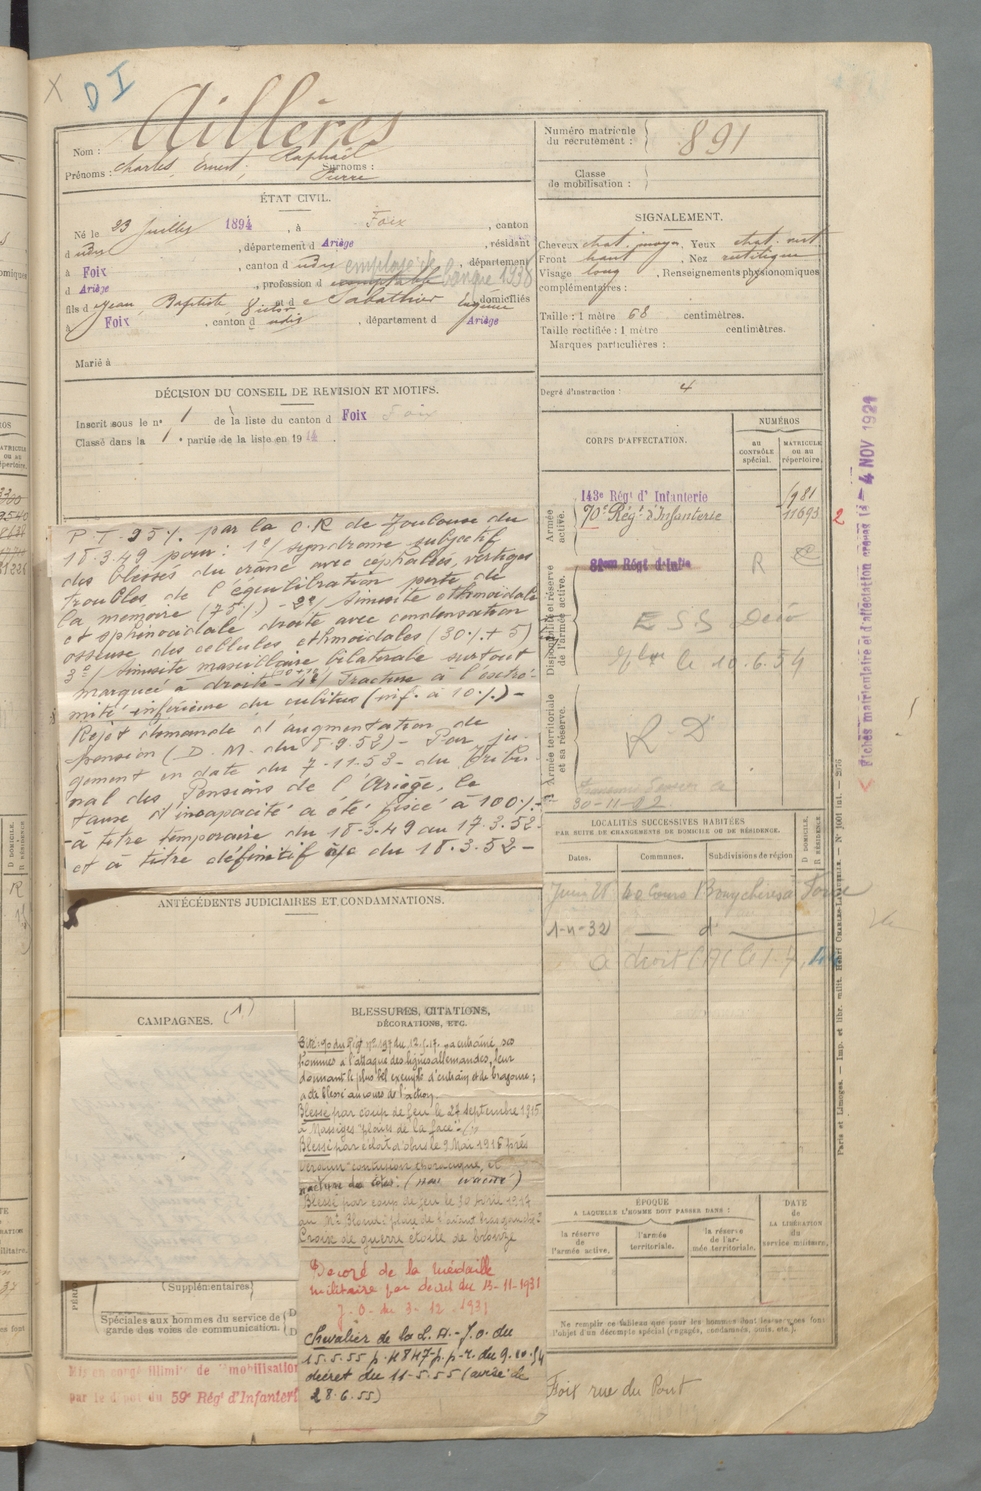 X DI
Nom : Aillères
Prénoms : Charles, Ernest, Raphaël Surnoms :
Pierre
ÉTAT CIVIL.
Né le 23 Juillet 1894, à Foix, canton
d udis, département d Ariège, résidant
à Foix, canton d udis employé de, département
d Ariège, profession d comptable banque 1938
fils d Jean, Baptiste Victor et d e Sabathier Eugénie domiciliés
à Foix, canton d udis, département d Ariège
Marié à
DÉCISION DU CONSEIL DE REVISION ET MOTIFS.
Inscrit sous le n° 1 de la liste du canton d Foix
Classé dans la 1e partie de la liste en 1914.
P.T. 95% par la C.R de Toulouse du
18.3.49 pour : 1°/ syndrome subjectif
des blessés du crâne avec céphalées, vertiges
troubles de l'équilibration perte de
la mémoire (75%) - 2°/ Sinusite ethmoïdale
et sphénoïdale droite avec condensation
osseuse des cellules ethmoïdales (30% + 5)
3°/ Sinusite maxillaire bilatérale surtout
marquée à droite - 4°/ Fracture à l'extré-
mité inférieure du cubitus (inf. à 10%) -
Rejet demande d'augmentation de
pension (D.M. du 5.9.52) - Par ju-
gement en date du 7-11.53 - du Tribu-
nal des Pensions de l'Ariège, le
taux d'incapacité a été fixé à 100% -
à titre temporaire du 18-3.49 au 17-3.52 -
et à titre définitif àpc du 18.3.52 -
ANTÉCÉDENTS JUDICIAIRES ET CONDAMNATIONS.
CAMPAGNES. (1)
(Supplémentaires)
Spéciales aux hommes du service de
garde des voies de communication.
Mis en congé illimité de démobilisation
par le dépôt du 59e Régt d'Infanterie
BLESSURES, CITATIONS,
DÉCORATIONS, ETC.
Cité : du Régt n° 197 du 12.5.17. a entraîné ses
hommes à l'attaque des lignes allemandes, leur
donnant le plus bel exemple d'entrain et de bravoure ;
a été blessé au cours de l'action.
Blessé par coup de feu le 27 septembre 1915
à Massiges "plaies de la face".
Blessé par éclat d'obus le 9 Mai 1916 près
Verdun contusion thoracique, et
fracture de côtes. (non évacué)
Blessé par coup de feu le 30 Avril 1917
au Mt Blond : plaie de l'avant bras gauche.
Croix de guerre étoile de bronze
Décoré de la médaille
militaire par décret du 13-11-1931
J.O. du 3-12.1931
Chevalier de la L.H. - J.O. du
15.5.55 p. 4847 - p.p.r. du 9.10.54
décret du 11-5.55 (avisé le
28.6.55)
Numéro matricule
du recrutement : 891
Classe
de mobilisation :
SIGNALEMENT.
Cheveux chat. moyn. Yeux chat.
Front haut, Nez rectiligne
Visage long, Renseignements physionomiques
complémentaires :
Taille : 1 mètre 68 centimètres.
Taille rectifiée : 1 mètre centimètres.
Marques particulières :
Degré d'instruction : 4
CORPS D'AFFECTATION.
NUMÉROS
AU CONTRÔLE spécial.
MATRICULE ou au répertoire.
Armée active.
143e Régt d'Infanterie 1981
70e Régt d'Infanterie 11693 2
Disponibilité et réserve de l'armée active.
R
ESS
le 10.6.54
Armée territoriale et sa réserve.
R-D
30-11-22
LOCALITÉS SUCCESSIVES HABITÉES
PAR SUITE DE CHANGEMENTS DE DOMICILE OU DE RÉSIDENCE.
Dates. Communes. Subdivisions de région D DOMICILE. R RÉSIDENCE
Juin 28
1-4-32 d°
ÉPOQUE
A LAQUELLE L'HOMME DOIT PASSER DANS :
DATE de LA LIBÉRATION du service militaire.
la réserve de l'armée active.
l'armée territoriale.
la réserve de l'armée territoriale.
Ne remplir ce tableau que pour les hommes dont les services font
l'objet d'un décompte spécial (engagés, condamnés, omis, etc.).
Foix rue du Pont
Fiches matriculaire et d'affectation le 4 NOV 1921
Paris et Limoges. — Imp. et libr. milit. Henri CHARLES-LAVAUZELLE.